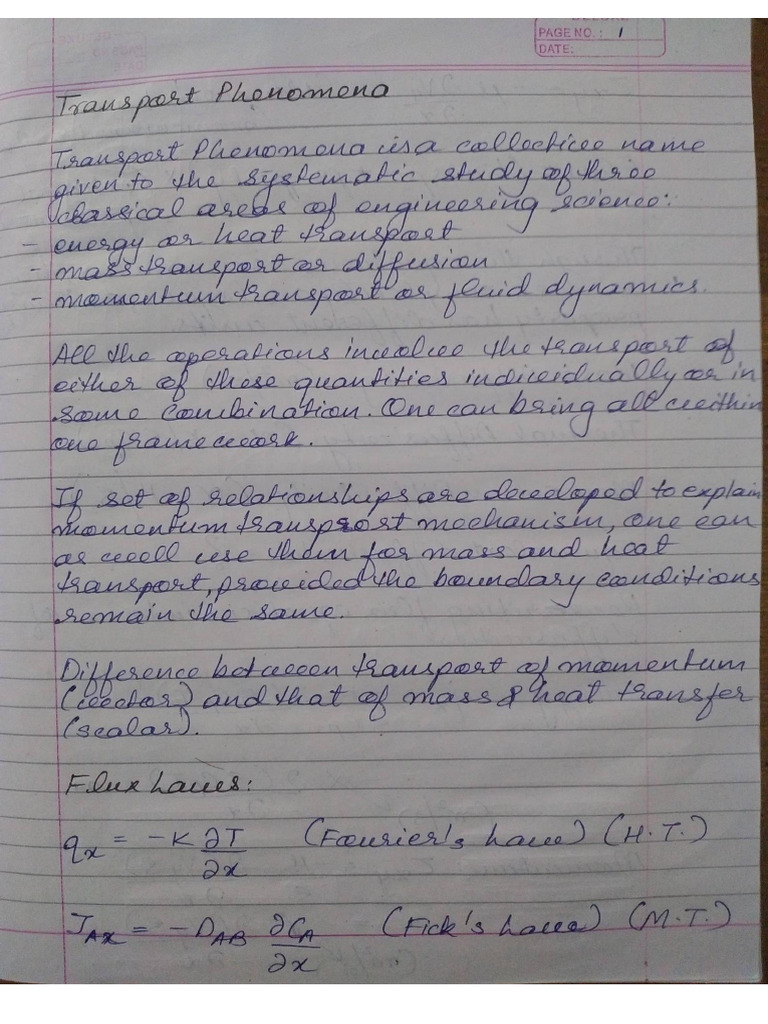 DELUXE
PAGE NO.: 1
DATE:
Transport Phenomena
Transport Phenomena is a collective name
given to the systematic study of three
classical areas of engineering science:
- energy or heat transport
- mass transport or diffusion
- momentum transport or fluid dynamics.
All the operations involve the transport of
either of these quantities individually or in
some combination. One can bring all within
one framework.
If set of relationships are developed to explain
momentum transport mechanism, one can
as well use them for mass and heat
transport, provided the boundary conditions
remain the same.
Difference between transport of momentum
(vector) and that of mass & heat transfer
(scalar).
Flux Laws:
qx = -K ∂T/∂x (Fourier's Law) (H.T.)
JAx = -DAB ∂CA/∂x (Fick's Law) (M.T.)